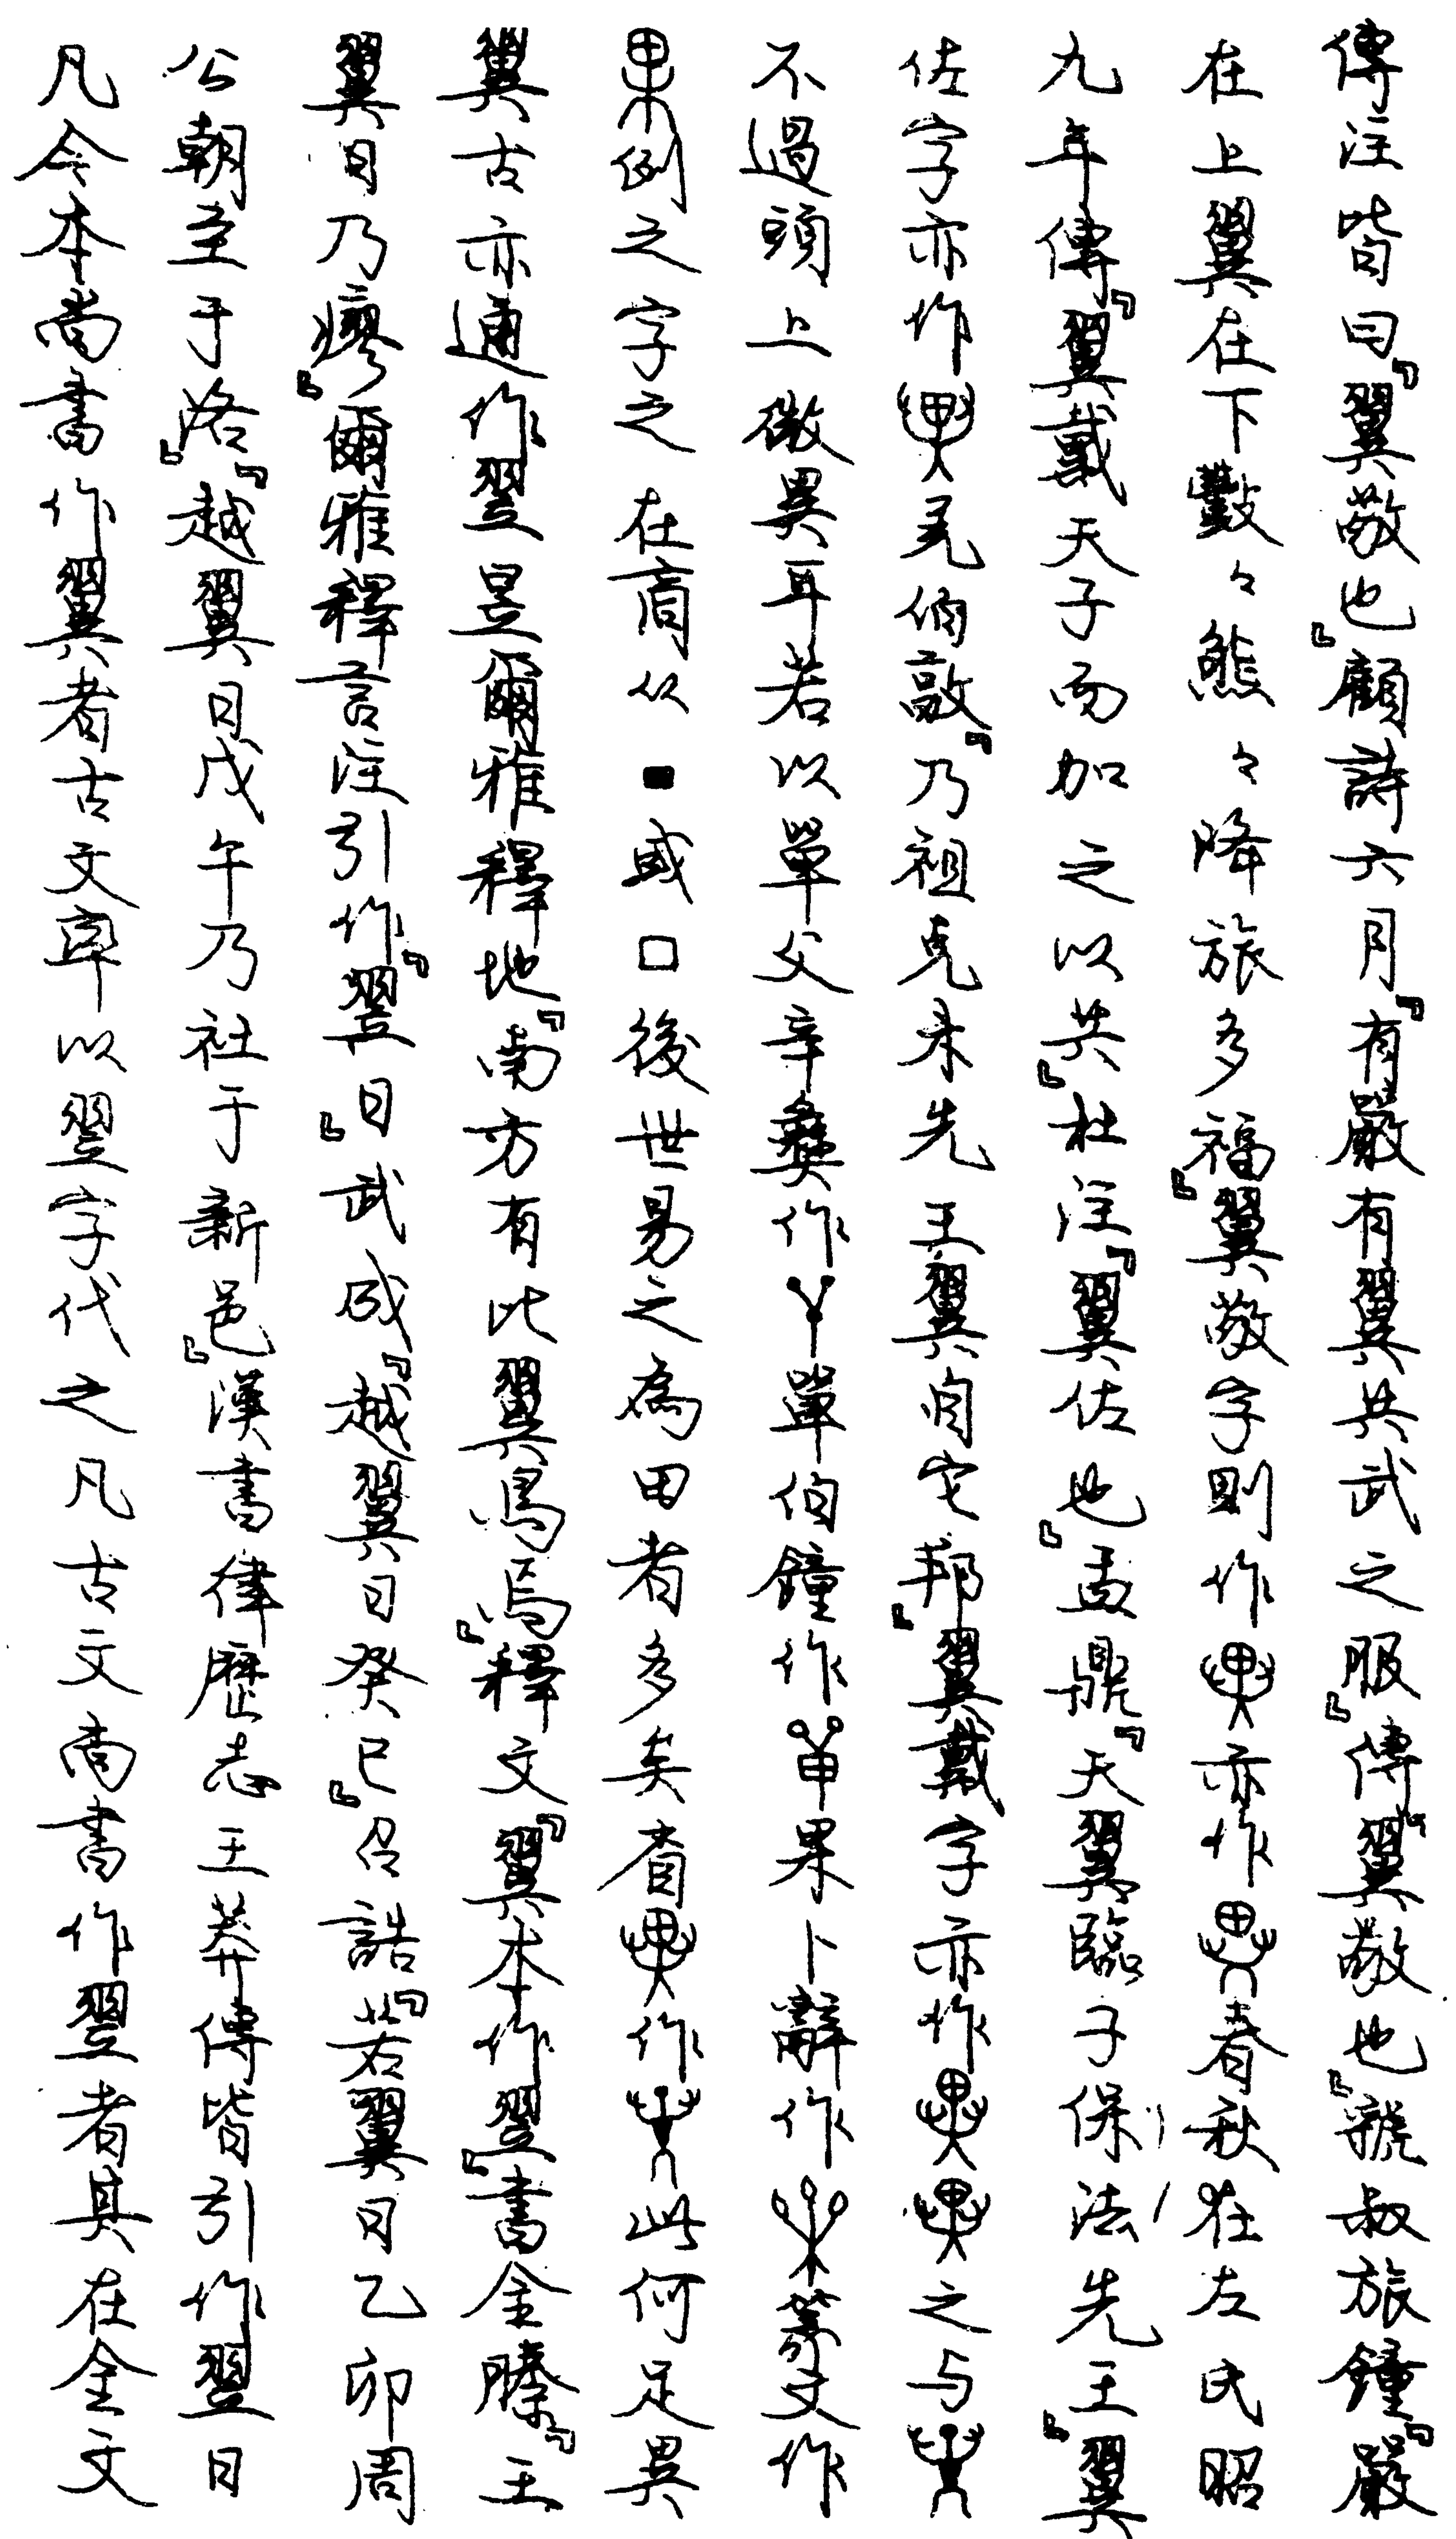 傳注皆曰『翼敬也』顧詩六月『有嚴有翼共武之服』傳『翼敬也』虢叔旅鐘『嚴
在上翼在下數々熊々降旅多福』翼敬字則作亦作春秋在左氏昭
九年傳『翼戴天子而加之以共』杜注『翼佐也』盂鼎『天翼臨子保法先王』翼
佐字亦作羌伯敦『乃祖克先王翼自它邦』翼戴字亦作之与
不過頭上微異耳若以單父辛彝作單伯鐘作果卜辭作篆文作
例之字之在商从■或口後世易之為田者多矣作此何足異
翼古亦通作翌昱爾雅釋地『南方有比翼鳥焉』釋文『翼本作翌』書金縢『王
翼日乃瘳』爾雅釋言注引作『翌日』武成『越翼日癸巳』召誥『若翼日乙卯周
公朝至于洛』『越翼日戊午乃社于新邑』漢書律歷志王莽傳皆引作翌日
凡今本尚書作翼者古文率以翌字代之凡古文尚書作翌者其在金文